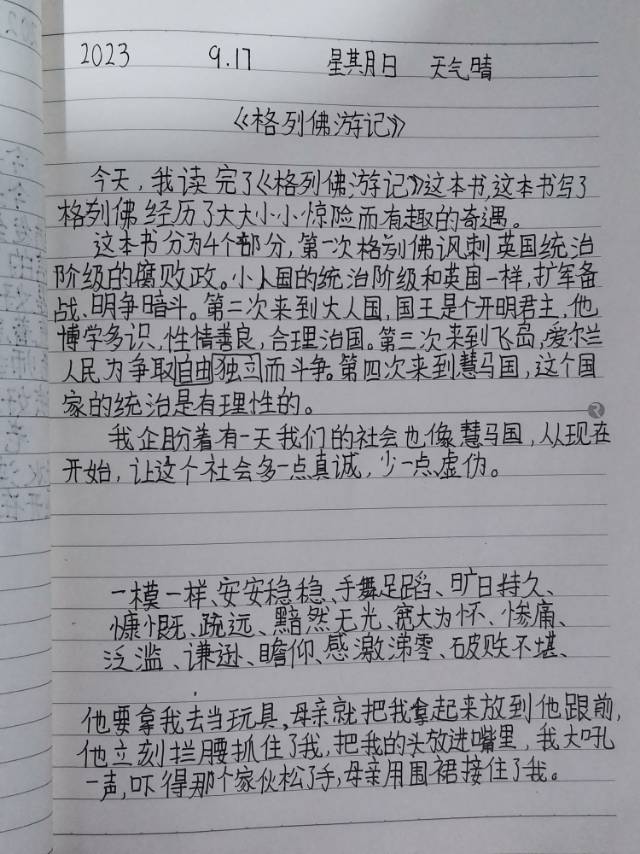 2023 9.17 星期日 天气晴
《格列佛游记》
今天，我读完了《格列佛游记》这本书，这本书写了
格列佛经历了大大小小惊险而有趣的奇遇。
这本书分为4个部分，第一次格列佛讽刺英国统治
阶级的腐败政。小人国的统治阶级和英国一样，扩军备
战、明争暗斗。第二次来到大人国，国王是个开明君主，他
博学多识，性情善良，合理治国。第三次来到飞岛，爱尔兰
人民为争取自由独立而斗争。第四次来到慧马国，这个国
家的统治是有理性的。
我企盼着有一天我们的社会也像慧马国，从现在
开始，让这个社会多一点真诚，少一点虚伪。
一模一样、安安稳稳、手舞足蹈、旷日持久、
慷慨、疏远、黯然无光、宽大为怀、惨痛、
泛滥、谦逊、瞻仰、感激涕零、破败不堪、
他要拿我去当玩具，母亲就把我拿起来放到他跟前，
他立刻拦腰抓住了我，把我的头放进嘴里，我大吼
一声，吓得那个家伙松了手，母亲用围裙接住了我。